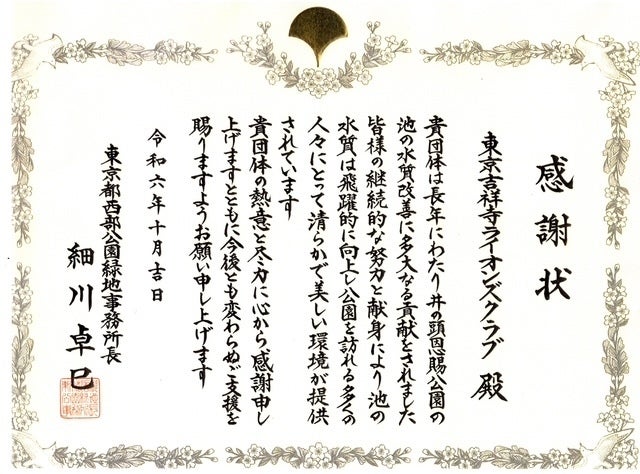 感謝状
東京吉祥寺ライオンズクラブ 殿
貴団体は長年にわたり井の頭恩賜公園の
池の水質改善に多大なる貢献をされました
皆様の継続的な努力と献身により池の
水質は飛躍的に向上し公園を訪れる多くの
人々にとって清らかで美しい環境が提供
されています
貴団体の熱意と尽力に心から感謝申し
上げますとともに今後とも変わらぬご支援を
賜りますようお願い申し上げます
令和六年十月吉日
東京都西部公園緑地事務所長
細川卓巳